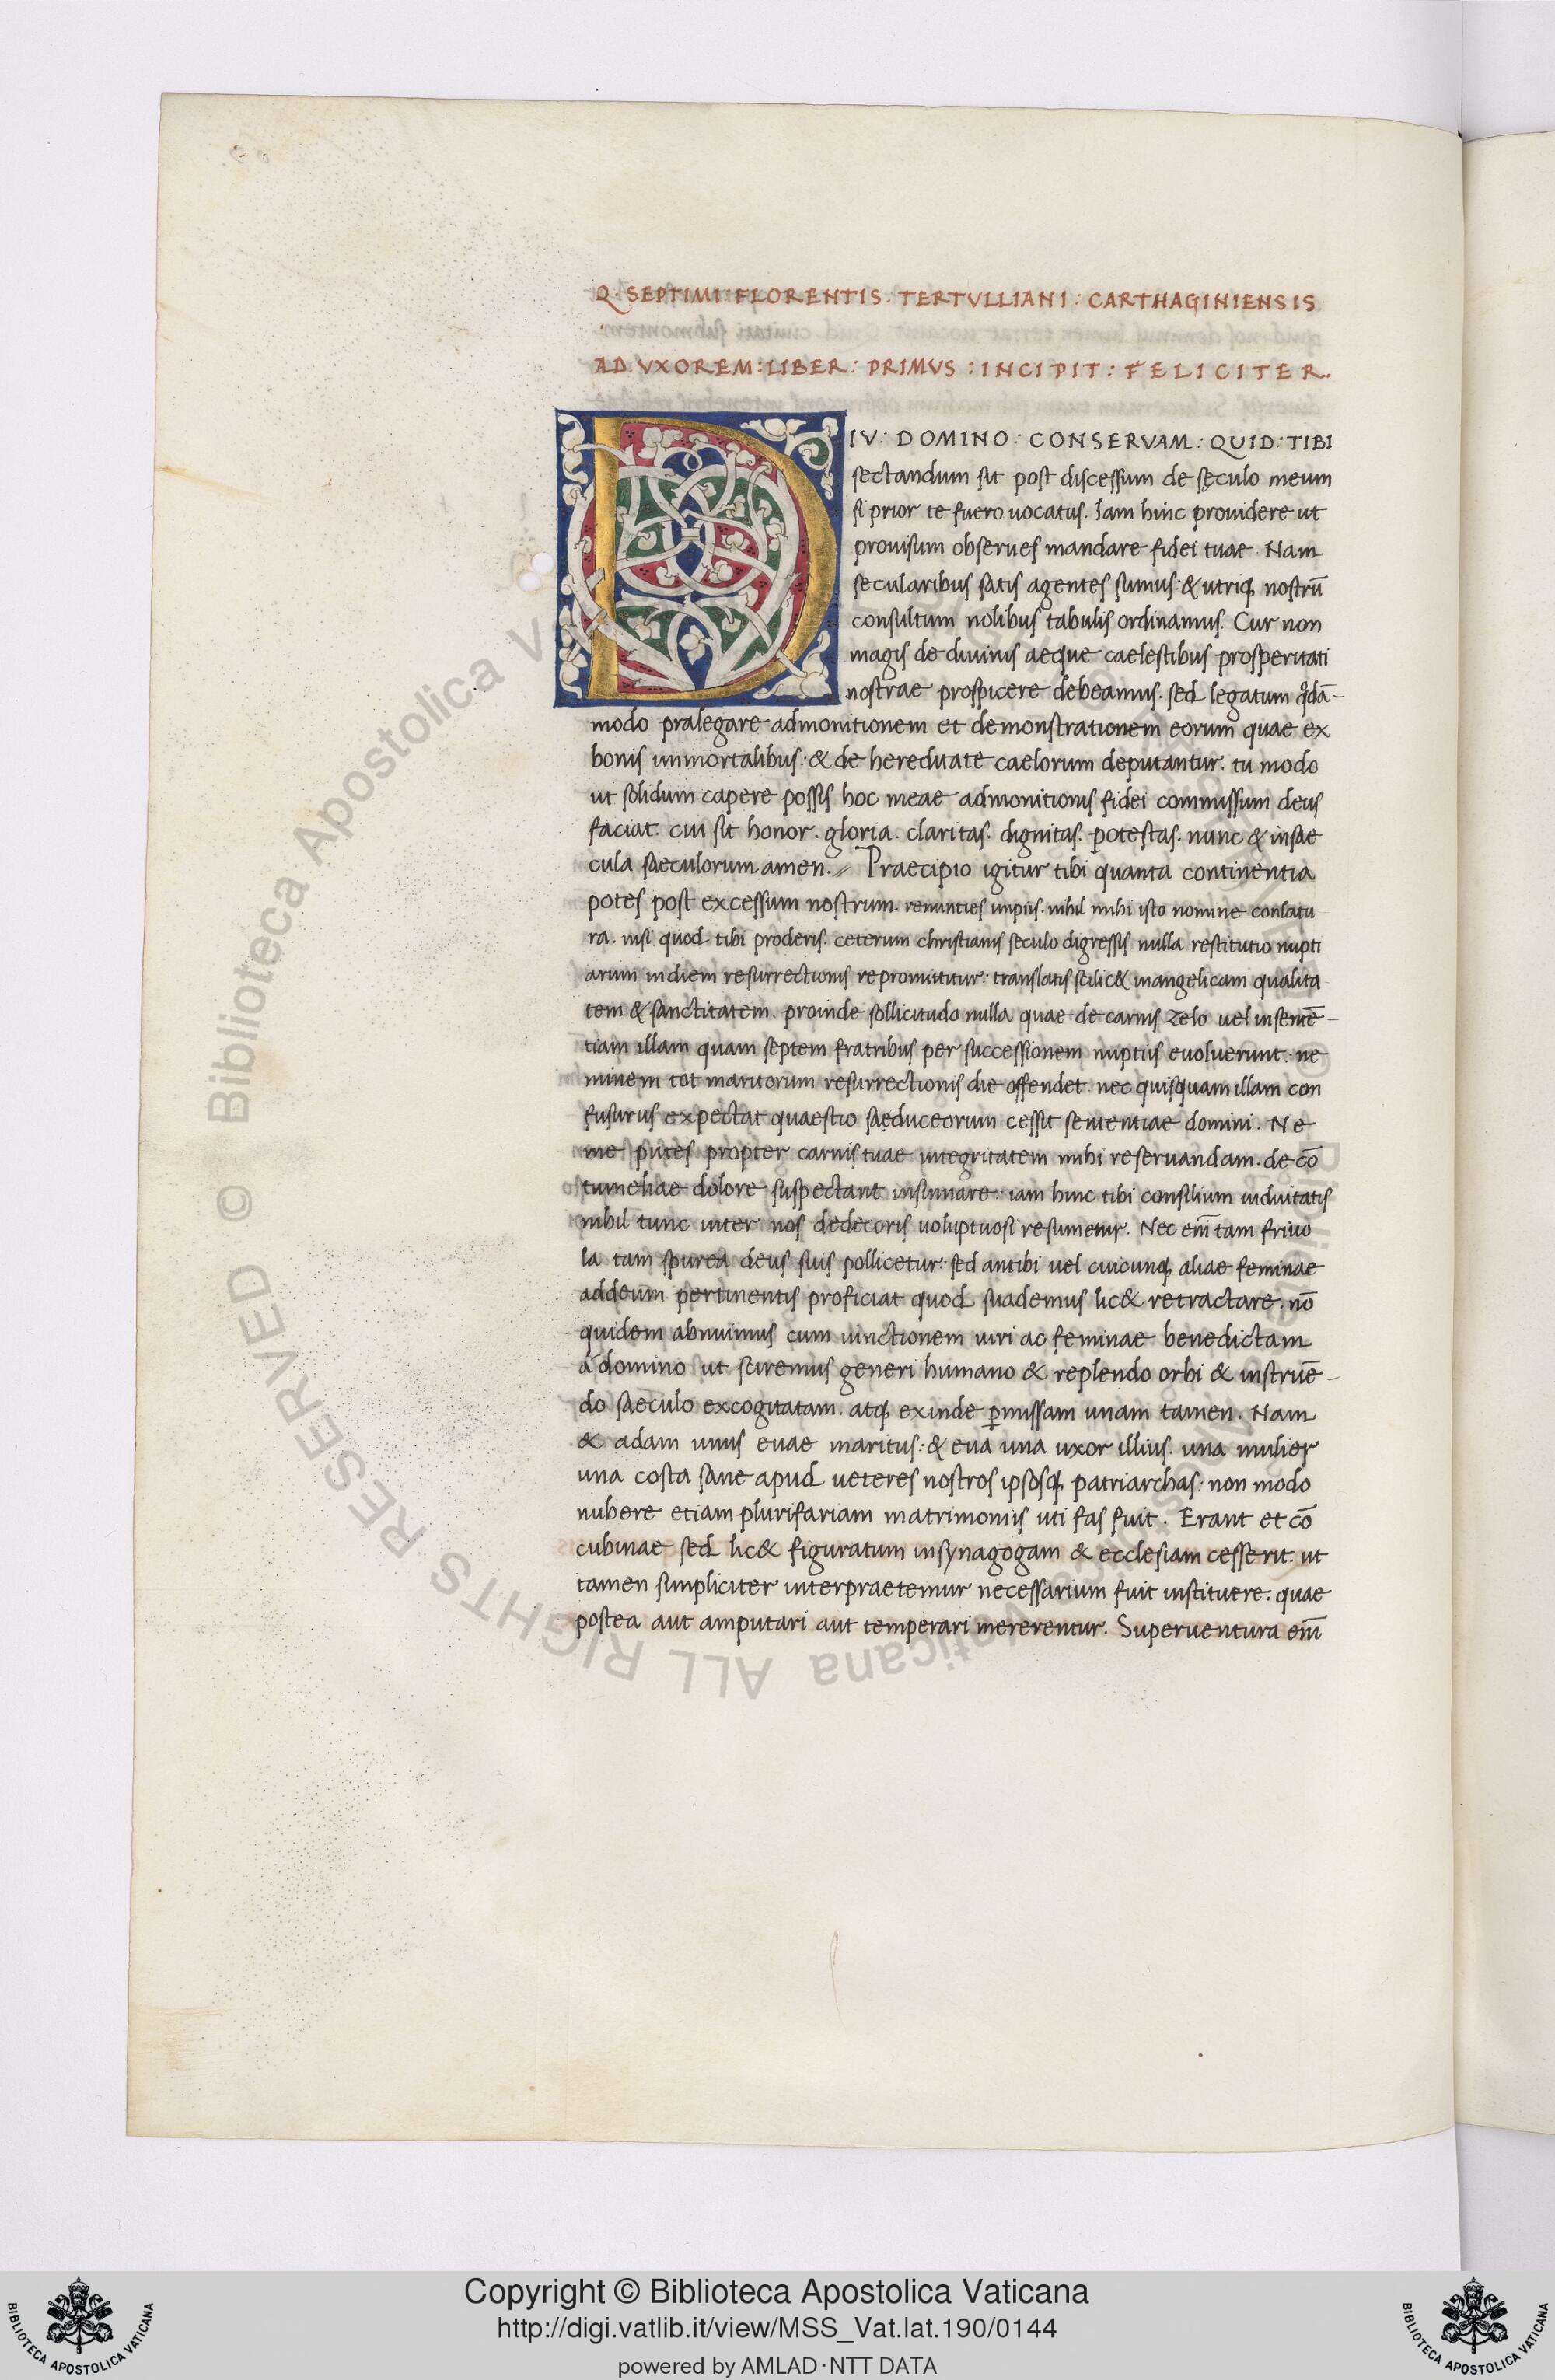 Q. SEPTIMI: FLORENTIS. TERTVLLIANI: CARTHAGINIENSIS
AD. VXOREM: LIBER: PRIMVS: INCIPIT: FELICITER.
DIV: DOMINO: CONSERVAM: QUID: TIBI
sectandum sit post discessum de sęculo meum
si prior te fuero uocatus. Iam hinc prouidere ut
prouisum obserues mandare fidei tuae. Nam
secularibus satis agentes sumus: & utriq; nostrū
consultum nolibus tabulis ordinamus. Cur non
magis de diuinis aeque caelestibus prosperitati
nostrae prospicere debeamus. sed legatum qͦdā-
modo pralegare admonitionem et demonstrationem eorum quae ex
bonis immortalibus: & de hereditate caelorum deputantur. tu modo
ut solidum capere possis hoc meae admonitionis fidei commissum deus
faciat: cui sit honor. gloria. claritas. dignitas. potestas. nunc & insae
cula saeculorum amen. // Praecipio igitur tibi quanta continentia
potes post excessum nostrum. renunties impiis. nihil mihi isto nomine conlatu
ra. nisi quod tibi proderis. ceterum christianis seculo digressis nulla restitutio nupti
arum indiem resurrectionis repromittitur: translatis scilic& inangelicam qualita
tem & sanctitatem. proinde sollicitudo nulla quae de carnis zelo uel insentē-
tiam illam quam septem fratribus per successionem nuptiis euoluerunt. ne
minem tot maritorum resurrectionis die offendet nec quisquam illam con
fusurus expectat quaestio saęduceorum cessit sententiae domini. Ne
me putes propter carnis tuae integritatem mihi reseruandam. de cō
tumeliae dolore suspectant insinuare: iam hinc tibi consilium uiduitatis
nihil tunc inter nos dedecoris uoluptuosi resumetur. Nec em̄ tam friuo
la tam spurea deus suis pollicetur: sed antibi uel cuicunq; aliae feminae
addeum pertinentis proficiat quod suademus lic& retractare. nō
quidem abnuimus cum iunctionem uiri ac feminae benedictam
a domino ut sciremus generi humano & replendo orbi & instruē-
do saeculo excogitatam. atq; exinde p̱missam unam tamen. Nam
& adam unus euae maritus: & eua una uxor illius. una mulier
una costa sane apud ueteres nostros ipsosq; patriarchas: non modo
nubere etiam plurifariam matrimoniis uti fas fuit. Erant et cō
cubinae sed lic& figuratum insynagogam & ecclesiam cesserit. ut
tamen simpliciter interpraetemur necessarium fuit instituere. quae
postea aut amputari aut temperari mererentur. Superuentura em̄
© Biblioteca Apostolica Vaticana ALL RIGHTS RESERVED
Copyright © Biblioteca Apostolica Vaticana
http://digi.vatlib.it/view/MSS_Vat.lat.190/0144
powered by AMLAD·NTT DATA
BIBLIOTECA APOSTOLICA VATICANA
BIBLIOTECA APOSTOLICA VATICANA